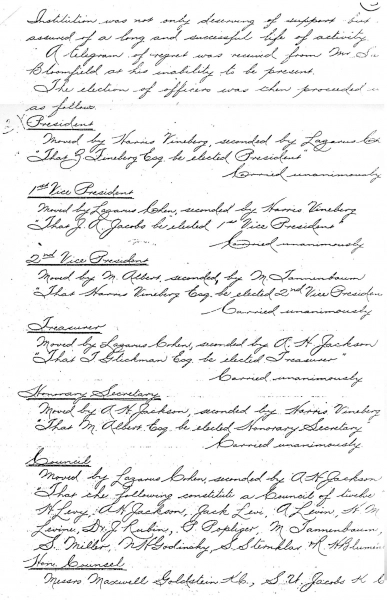 Institution was not only deserving of support but
assured of a long and successful life of activity.
A telegram of regret was received from Mr.
Bloomfield at his inability to be present.
The election of officers was then proceeded
as follows
President
Moved by Harris Vineberg, seconded by Lazarus
"That Z Fineberg Esq be elected President"
Carried unanimously
1st Vice President
Moved by Lazarus Cohen, seconded by Harris Vineberg
"That J. A. Jacobs be elected 1st Vice President"
Carried unanimously
2nd Vice President
Moved by M. Albert, seconded by M Tannenbaum
"That Harris Vineberg Esq. be elected 2nd Vice Presiden
Carried unanimously
Treasurer
Moved by Lazarus Cohen, seconded by A. H. Jackson
"That I Glickman Esq be elected Treasurer"
Carried unanimously
Honorary Secretary
Moved by A H Jackson, seconded by Harris Vineberg
"That M. Albert Esq be elected Honorary Secretary
Carried unanimously
Council
Moved by Lazarus Cohen, seconded by A H Jackson
"That the following constitute a Council of twelve
H Levy, A H Jackson, Jack Levi, A Levin, H. M
Levine, Dr. J Rubin, P Popliger, M Tannenbaum,
S. Miller, N H Godinsky, S Sternklar & H Blumen
Hon. Counsel
Messrs Maxwell Goldstein K.C., S. W. Jacobs K